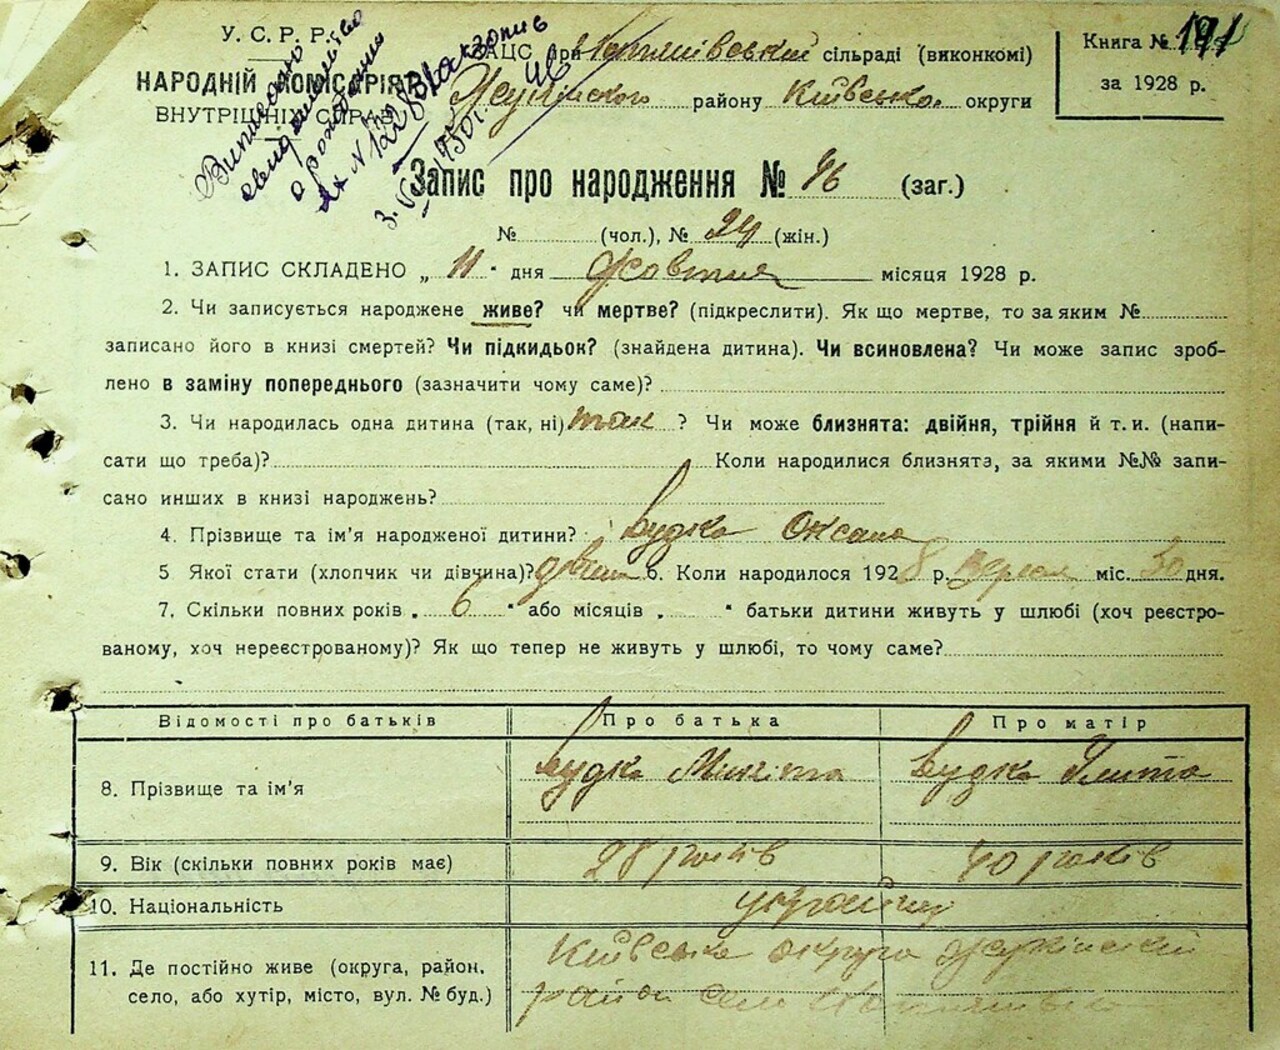 У. С. Р. Р.
НАРОДНІЙ КОМІСАРІЯТ
ВНУТРІШНІХ СПРАВ
Виписано
свидетельство
о рождении
ЗАЦС при сільраді (виконкомі)
району Київсько. округи
Книга № 191
за 1928 р.
Запис про народження № 46 (заг.)
№ (чол.), № 24 (жін.)
1. ЗАПИС СКЛАДЕНО „ 11 " дня Жовтня місяця 1928 р.
2. Чи записується народжене живе? чи мертве? (підкреслити). Як що мертве, то за яким №
записано його в книзі смертей? Чи підкидьок? (знайдена дитина). Чи всиновлена? Чи може запис зроб-
лено в заміну попереднього (зазначити чому саме)?
3. Чи народилась одна дитина (так, ні) так ? Чи може близнята: двійня, трійня й т. и. (напи-
сати що треба)? Коли народилися близнята, за якими №№ запи-
сано инших в книзі народжень?
4. Прізвище та ім'я народженої дитини? Оксана
5 Якої стати (хлопчик чи дівчина)? 6. Коли народилося 1928 р. Вересня міс. 30 дня.
7. Скільки повних років „ 6 " або місяців „ " батьки дитини живуть у шлюбі (хоч реєстро-
ваному, хоч нереєстрованому)? Як що тепер не живуть у шлюбі, то чому саме?
Відомості про батьків Про батька Про матір
8. Прізвище та ім'я
9. Вік (скільки повних років має) 28 років 40 років
10. Національність
11. Де постійно живе (округа, район,
село, або хутір, місто, вул. № буд.)
Київська округа
району село